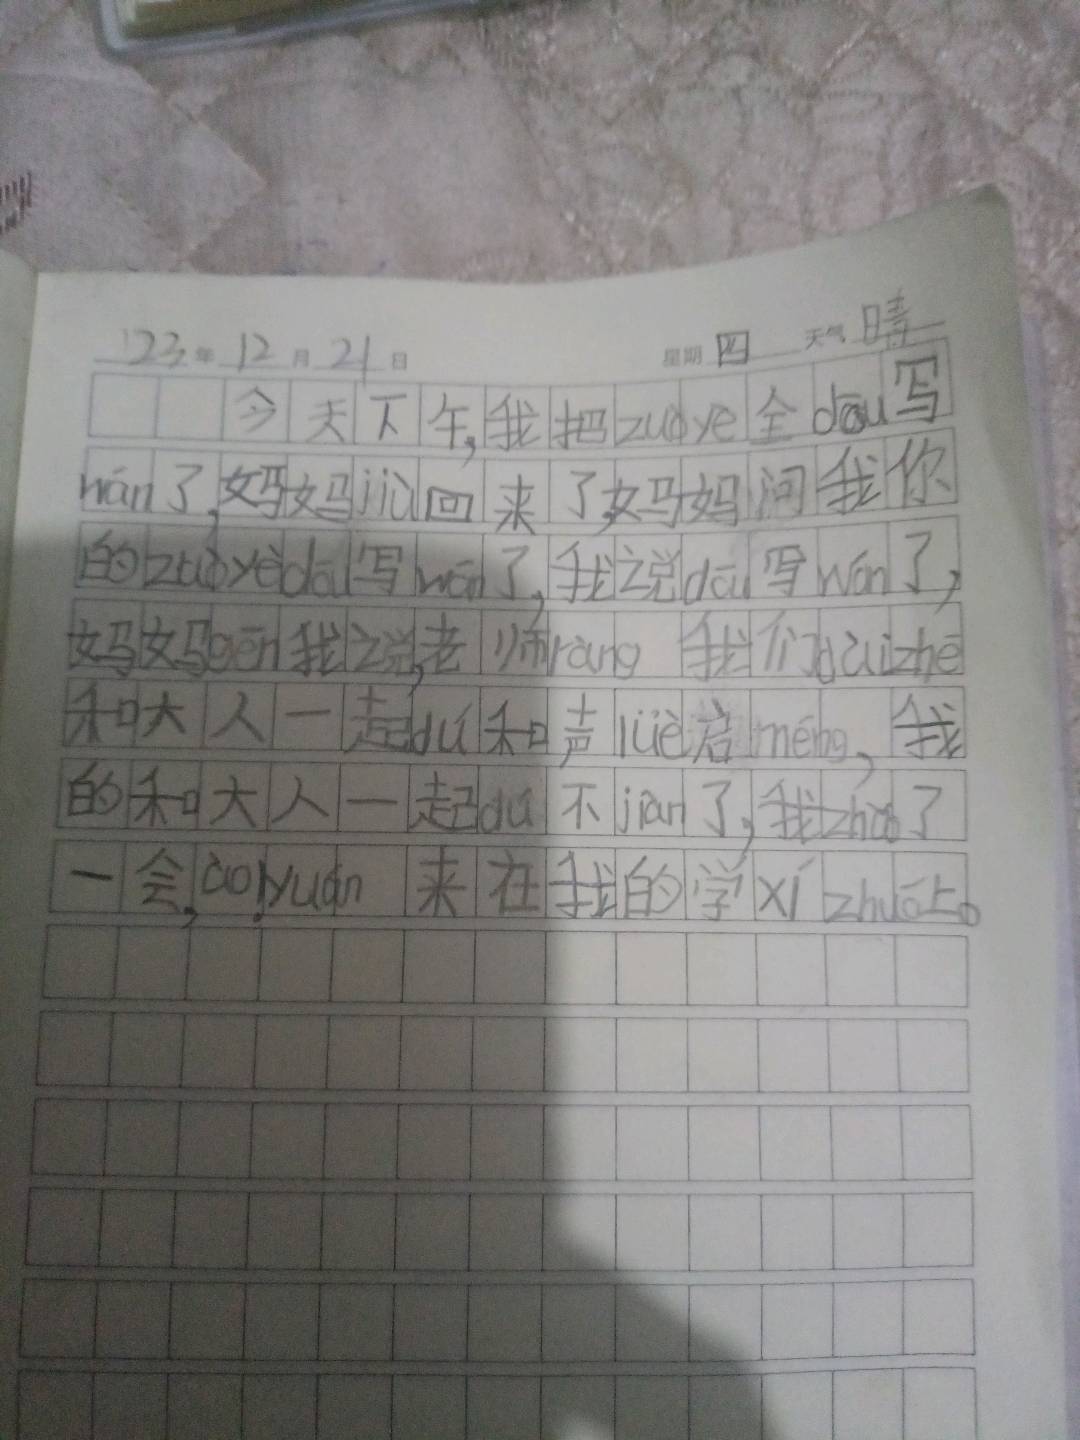 '23年12月21日 星期四 天气晴
今天下午,我把zuòye全dōu写
wán了,妈妈jiù回来了,妈妈问我你
的zuòyèdōu写wán了,我说dōu写wán了,
妈妈gēn我说,老师ràng我们dài zhe
和大人一起dú和声lüè启méng,我
的和大人一起dú不jiàn了,我zhǎo了
一会,āo!yuán来在我的学xízhuō上。